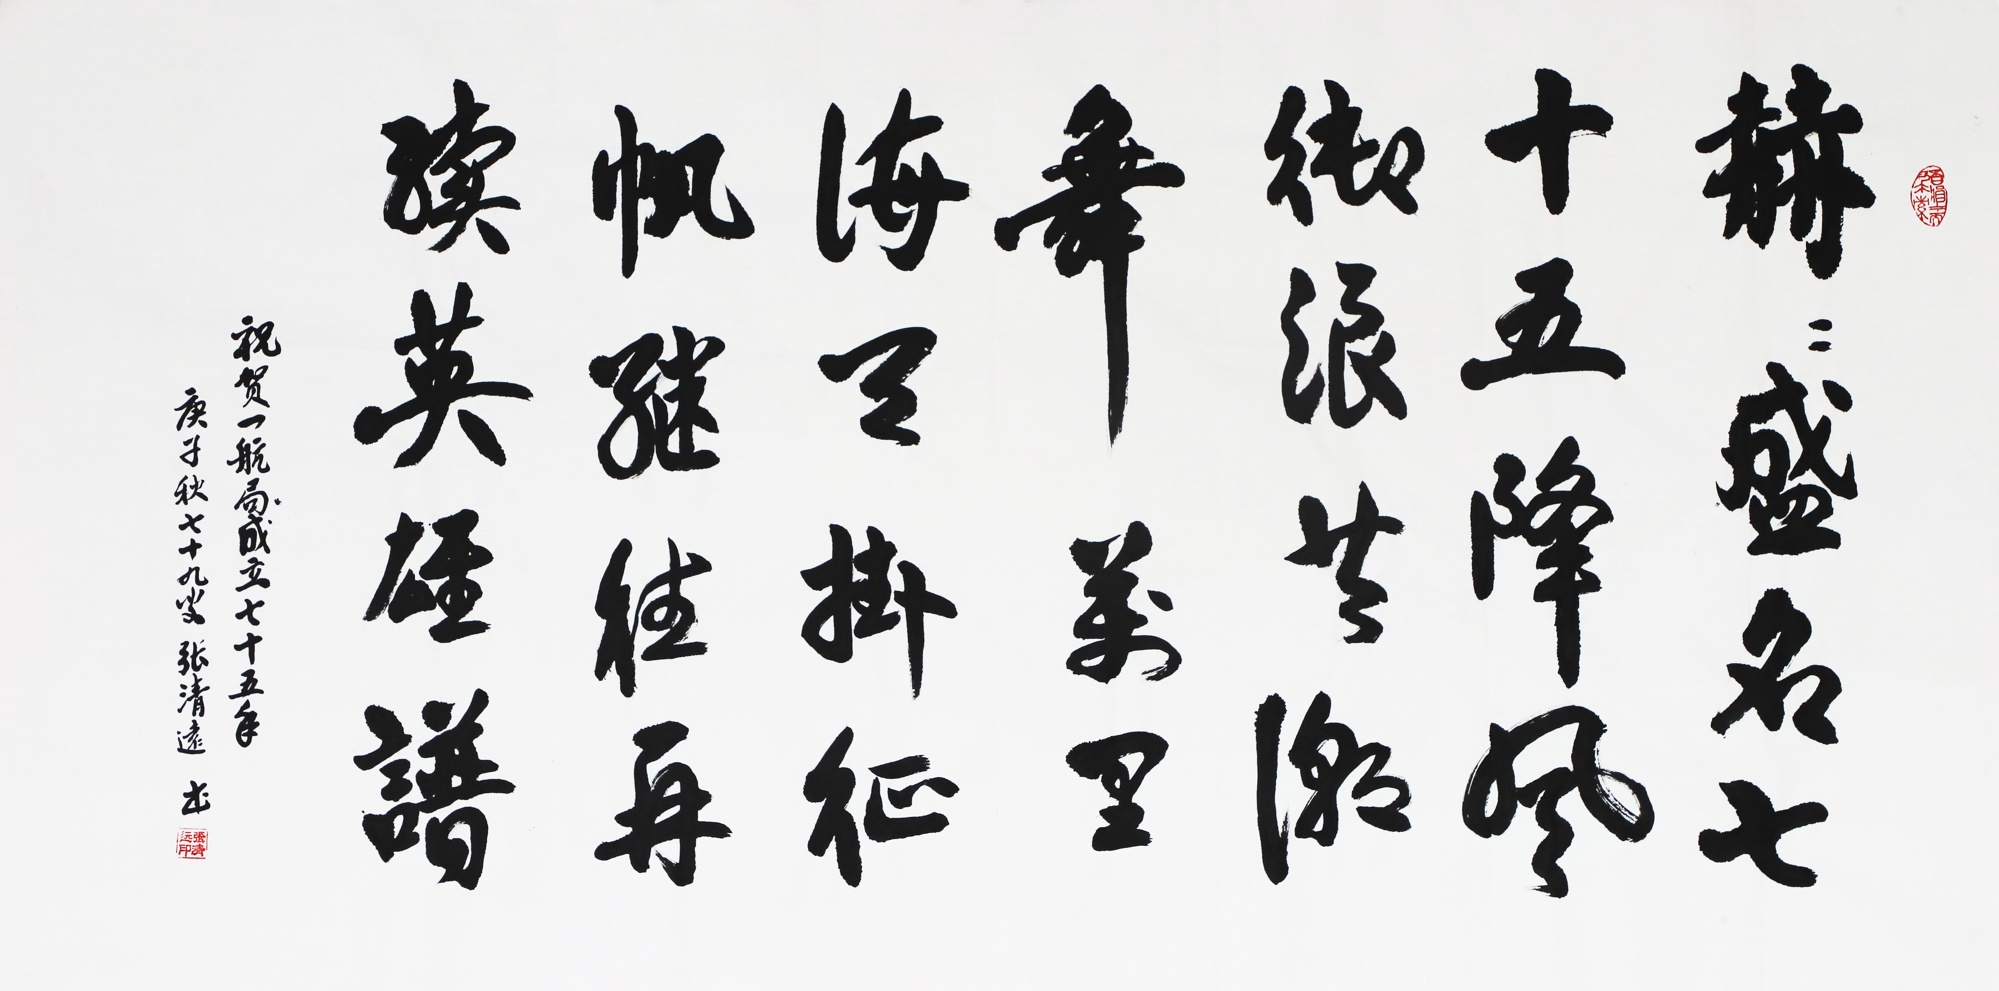 赫〻盛名七
十五降风
御浪共潮
舞萬里
海天掛征
帆继往再
續英雄譜
祝贺一航局成立七十五年
庚子秋七十九叟张清遠书
張清远印